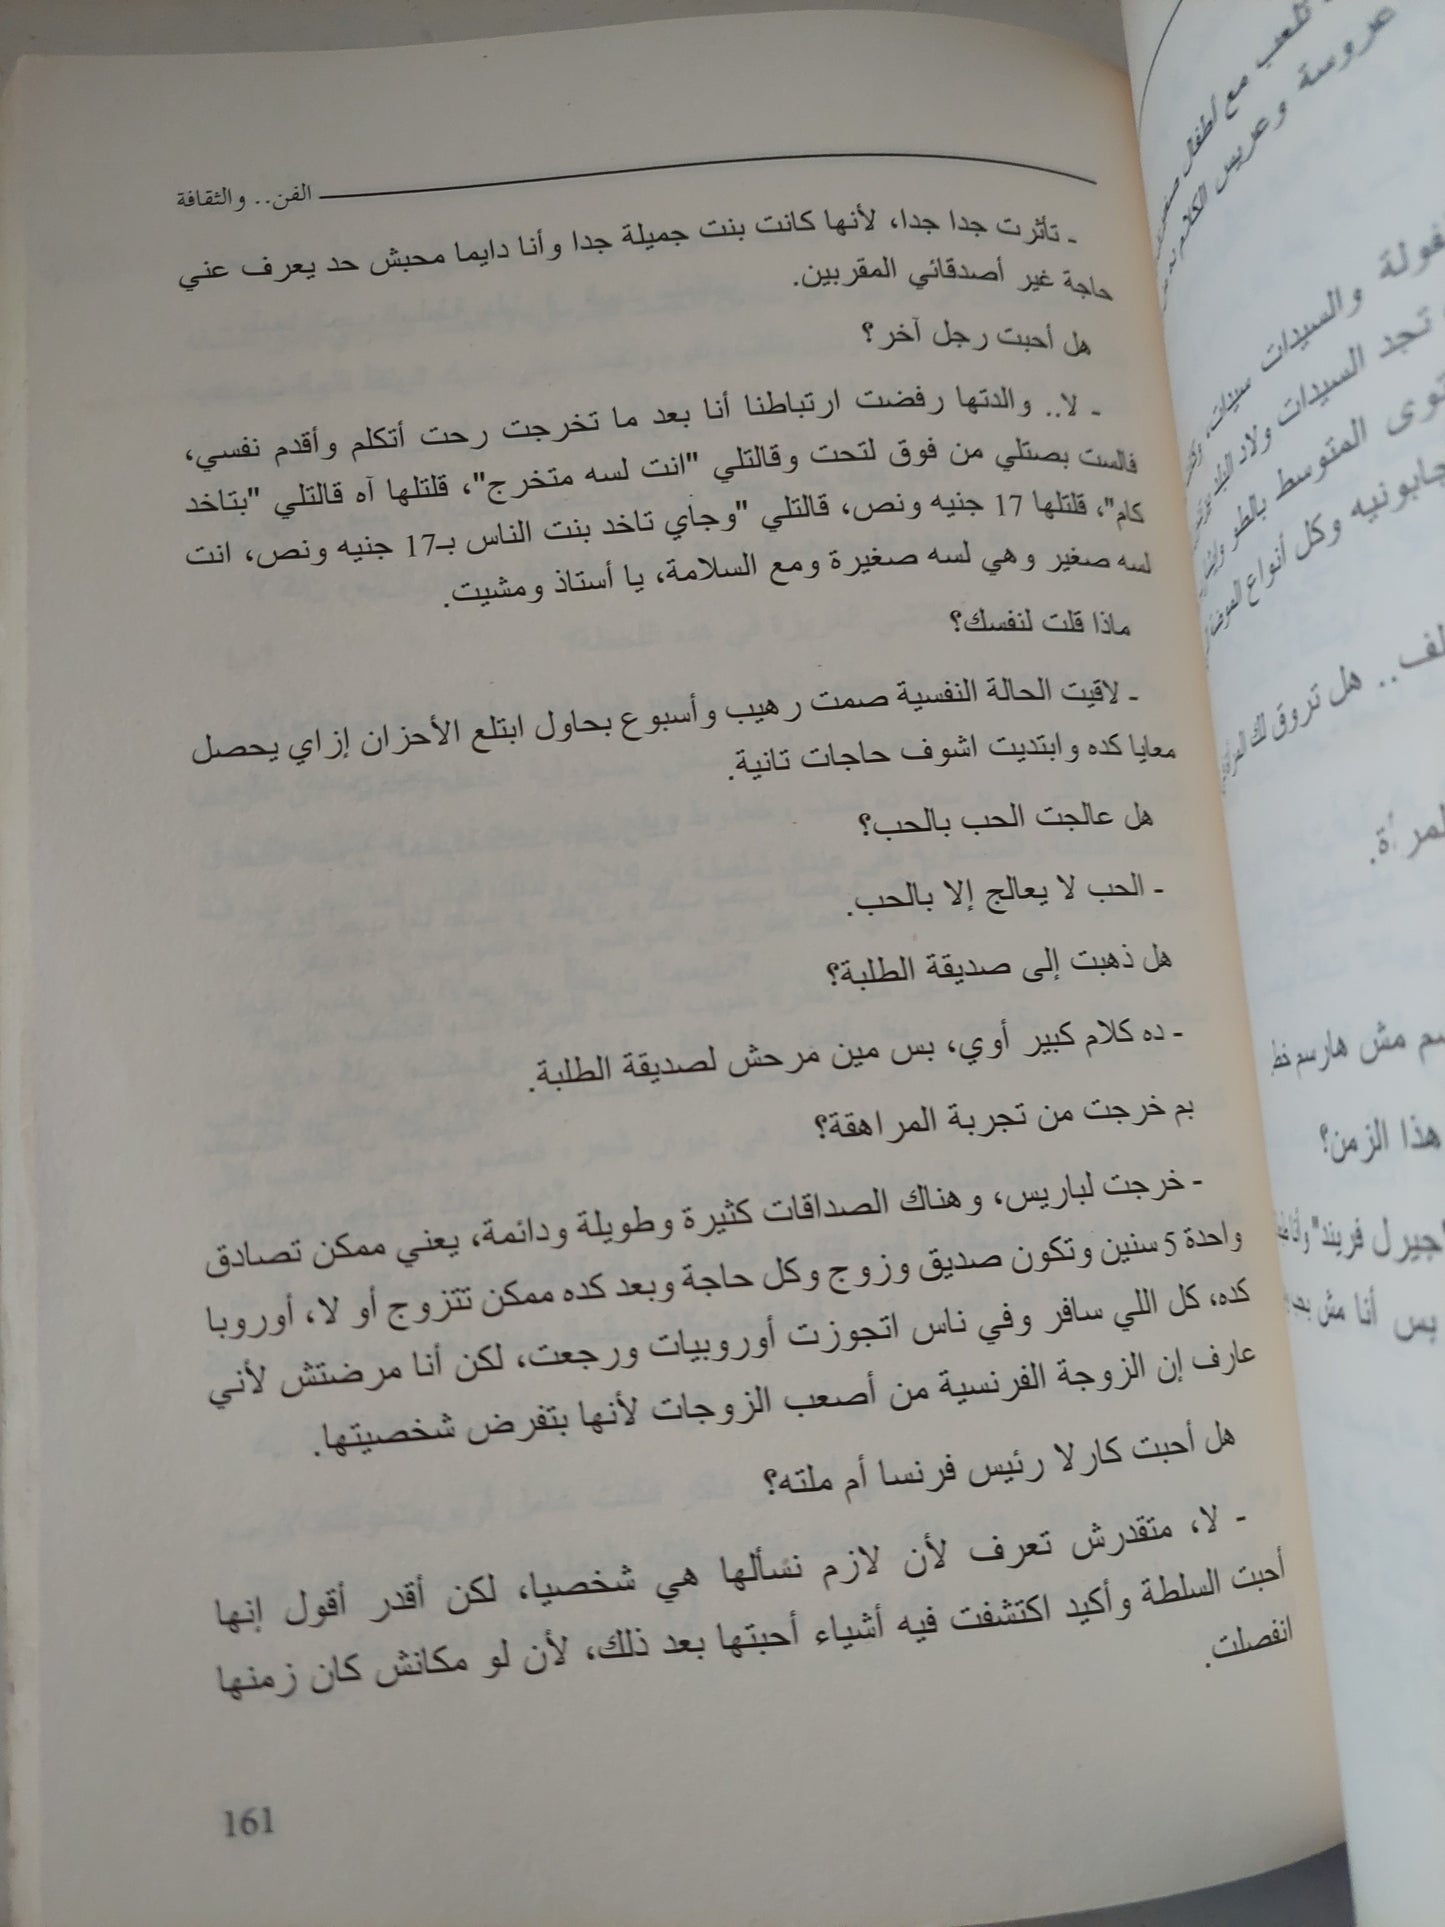 الفن.. والثقافة
ـ تأثرت جدا جدا، لأنها كانت بنت جميلة جدا وأنا دايما محبش حد يعرف عني
حاجة غير أصدقائي المقربين.
هل أحبت رجل آخر؟
ـ لا.. والدتها رفضت ارتباطنا أنا بعد ما تخرجت رحت أتكلم وأقدم نفسي،
فالست بصتلي من فوق لتحت وقالتلي "انت لسه متخرج"، قلتلها آه قالتلي "بتاخد
كام"، قلتلها 17 جنيه ونص، قالتلي "وجاي تاخد بنت الناس بـ17 جنيه ونص، انت
لسه صغير وهي لسه صغيرة ومع السلامة، يا أستاذ ومشيت.
ماذا قلت لنفسك؟
ـ لاقيت الحالة النفسية صمت رهيب وأسبوع بحاول ابتلع الأحزان إزاي يحصل
معايا كده وابتديت اشوف حاجات تانية.
هل عالجت الحب بالحب؟
ـ الحب لا يعالج إلا بالحب.
هل ذهبت إلى صديقة الطلبة؟
ـ ده كلام كبير أوي، بس مين مرحش لصديقة الطلبة.
بم خرجت من تجربة المراهقة؟
ـ خرجت لباريس، وهناك الصداقات كثيرة وطويلة ودائمة، يعني ممكن تصادق
واحدة 5 سنين وتكون صديق وزوج وكل حاجة وبعد كده ممكن تتزوج أو لا، أوروبا
كده، كل اللي سافر وفي ناس اتجوزت أوروبيات ورجعت، لكن أنا مرضتش لأني
عارف إن الزوجة الفرنسية من أصعب الزوجات لأنها بتفرض شخصيتها.
هل أحبت كارلا رئيس فرنسا أم ملته؟
ـ لا، متقدرش تعرف لأن لازم نسألها هي شخصيا، لكن أقدر أقول إنها
أحبت السلطة وأكيد اكتشفت فيه أشياء أحبتها بعد ذلك، لأن لو مكانش كان زمنها
انفصلت.
161
تلعب مع أطفال
عروسة وعريس الكلام
والسيدات سيدات،
تجد السيدات ولاد البلد
المتوسط بالطو
وكل أنواع
هل تروق لك
مش هارسم خط
هذا الزمن؟
جيرل فريند"
بس أنا مش